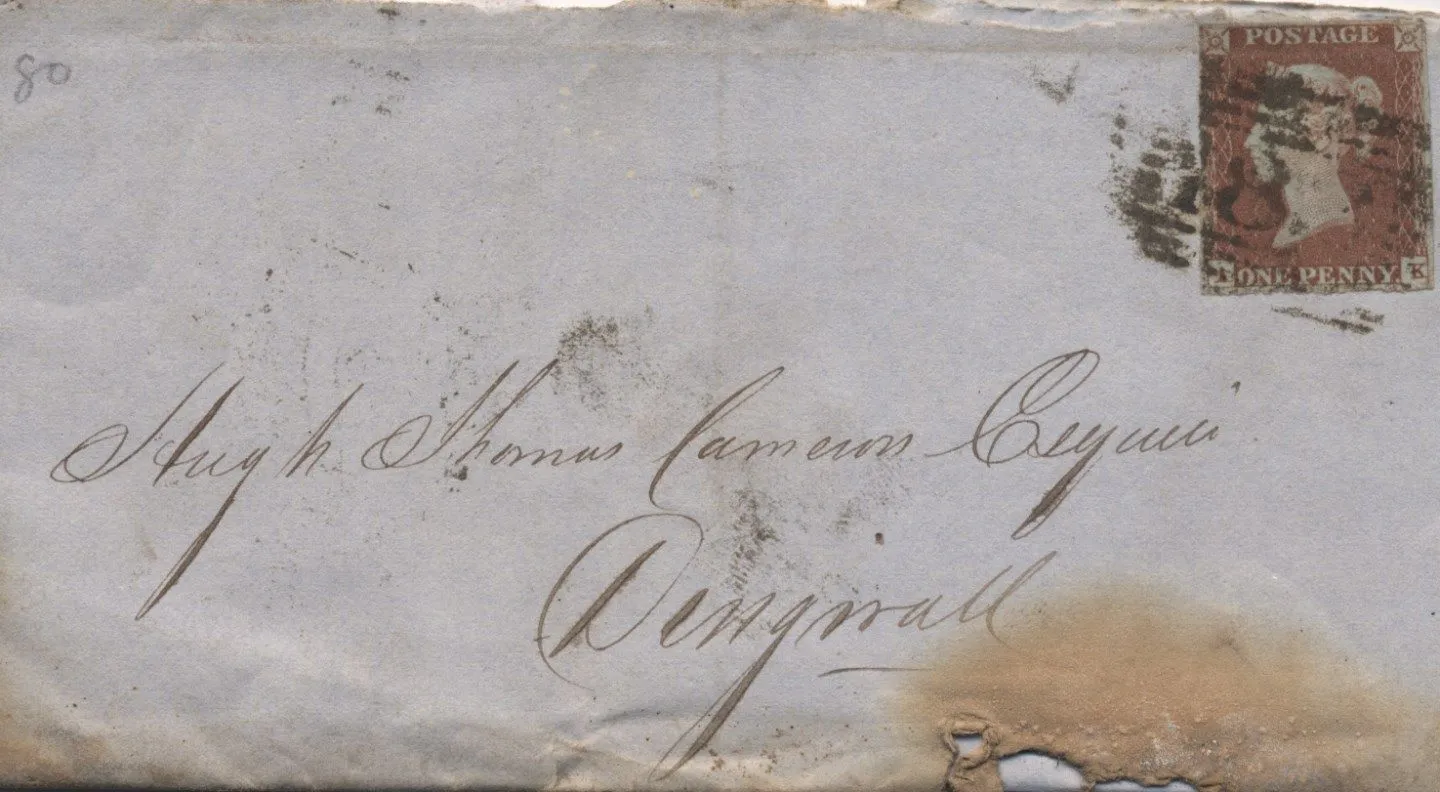 80
POSTAGE
ONE PENNY
K
Hugh Thomas Cameron Esquire
Dingwall